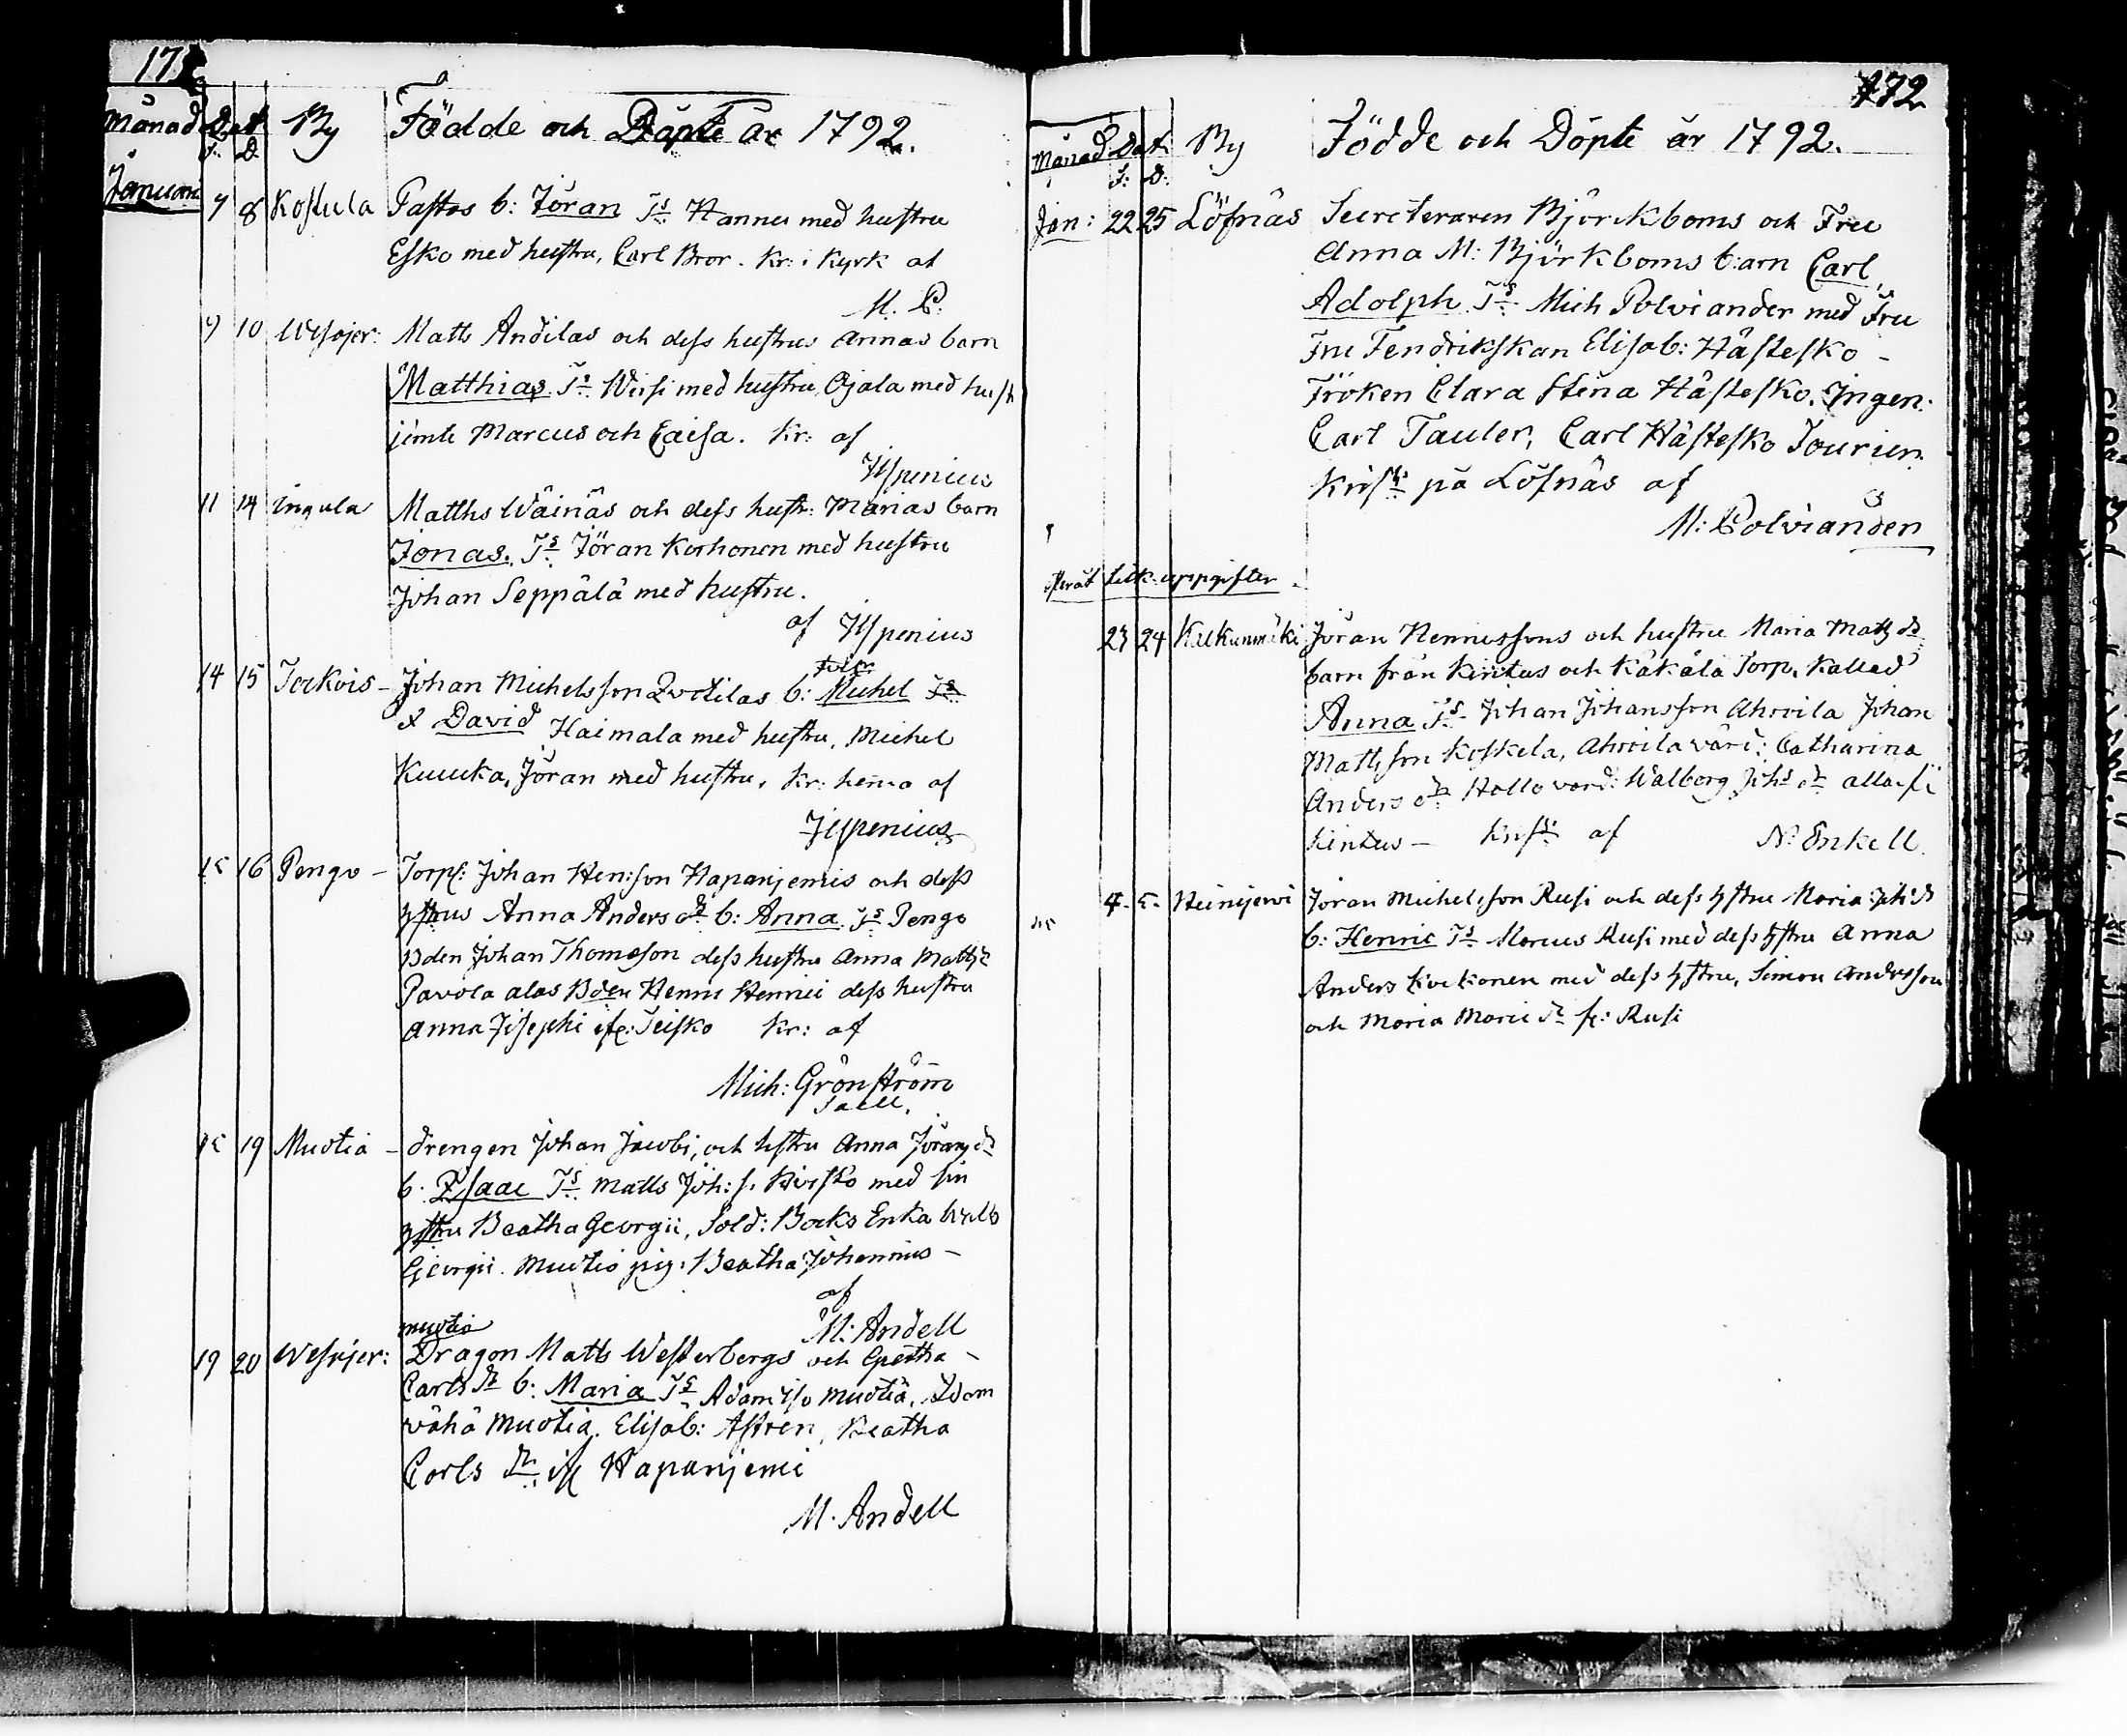 Månad Dat By Födde och Döpte år 1792.
F. D.
Januari 7 8 Koskula Pastos b: Jöran Ts Hannu med hustru
Esko med hustru, Carl Bror. Kr: i Kyrk af
M. P.
9 10 Wesajer: Matts Andilas och dess hustrus Annas barn
Matthias Ts med hustru, Ojala med hust
jemte Marcus och Caisa. Kr: af
Ilspenius
11 14 Ingala Matths Wäinäs och dess hustr: Marias barn
Jonas. Ts Jöran Korhonen med hustru
Johan Seppälä med hustru.
af Ilspenius
14 15 Jockois - Johan Michelsson b: Michel Ts
& David Haimala med hustru, Michel
Kuuka, Jöran med hustru, Kr: hema af
Ilspenius
15 16 Pengo - Torp: Johan Hen:son Hapanjemis och dess
hstrus Anna Anders dr b: Anna Ts Pengo
Bden Johan Thomsson dess hustru Anna Matts d
Pavola alas Bden Henric Henrici dess hustru
Anna Josephi Teisko Kr: af
Mich: Grönström
Sacell.
15 19 Muotia - drengen Johan Jacobi, och hstru Anna Jörans dr
b. Isaac Ts Matts Joh: s. med sin
hstru Beatha Georgii, Sold: Bocks Enka
Georgii. Muotio pig: Beatha Johannis -
af
M: Andell
muotio
19 20 Wesajer: Dragon Matts Westerbergs och Gretha -
Carls dr b: Maria Ts Adam Iso Muotia, Adam
vähä Muotia. Elisab: Astren, Beatha
Carls dr Hapanjemi
M. Andell
172
Månad Dat. By Födde och Döpte år 1792.
F: D:
Jan: 22 25 Löfnäs Secreteraren Björckboms och Fru
Anna M: Björkboms b:arn Carl
Adolph Ts Mich Polviander med Fru
Fru Fendrikskan Elisab: Hästesko -
Fröken Clara Stena Hästesko. Ingen:
Carl Tauler, Carl Hästesko Jourien
Krist: på Löfnäs af
M: Polviander
uppgifter
23 24 Kukunmäki Jöran Hennussons och hustru Maria Matts dr
barn från Kintus och Käkälä Torp, Kallad
Anna Ts Johan Johansson Ahovila Johan
Mattsson Koskela, Ahovila värd: Catharina
Anders dr Hollo värd: Walborg Johs dr alla fr
Kintus - Krist: af N. Enkell
4. 5. Heinijervi Jöran Michelsson Rusi och dess hstru Maria Joh: d
b: Henric Ts Marcus Rusi med dess hstru Anna
Anders Kukonen med dess hstru, Simon Andersson
och Maria Marci dr fr: Rusi